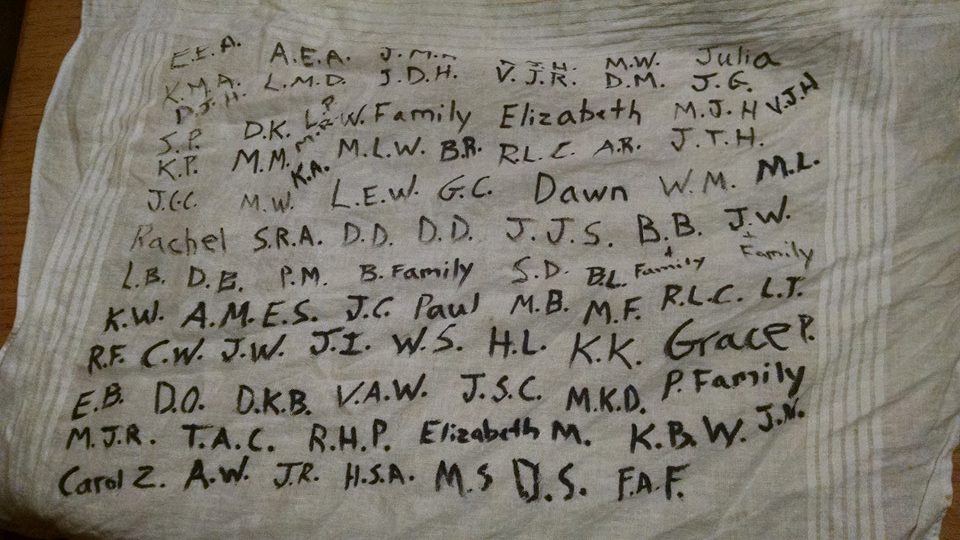 E.E.A. A.E.A. J.M. M.W. Julia
K.M.A. L.M.D. J.D.H. V.J.R. D.M. J.G.
D.J.H.
S.P. D.K. W. Family Elizabeth M.J.H V.J.H
K.P. M.M. M.L.W. B.R. R.L.C. A.R. J.T.H.
J.C.C. M.W. K.A. L.E.W. G.C. Dawn W.M. M.L.
Rachel S.R.A. D.D. D.D. J.J.S. B.B. J.W. + Family
L.B. D.B. P.M. B. Family S.D. B.L. + Family
K.W. A.M.E.S. J.C. Paul M.B. M.F. R.L.C. L.T.
R.F. C.W. J.W. J.I. W.S. H.L. K.K. Grace P.
E.B. D.O. D.K.B. V.A.W. J.S.C. M.K.D. P. Family
M.J.R. T.A.C. R.H.P. Elizabeth M. K.B.W. J.N.
Carol Z. A.W. J.R. H.S.A. M.S D.S. F.A.F.